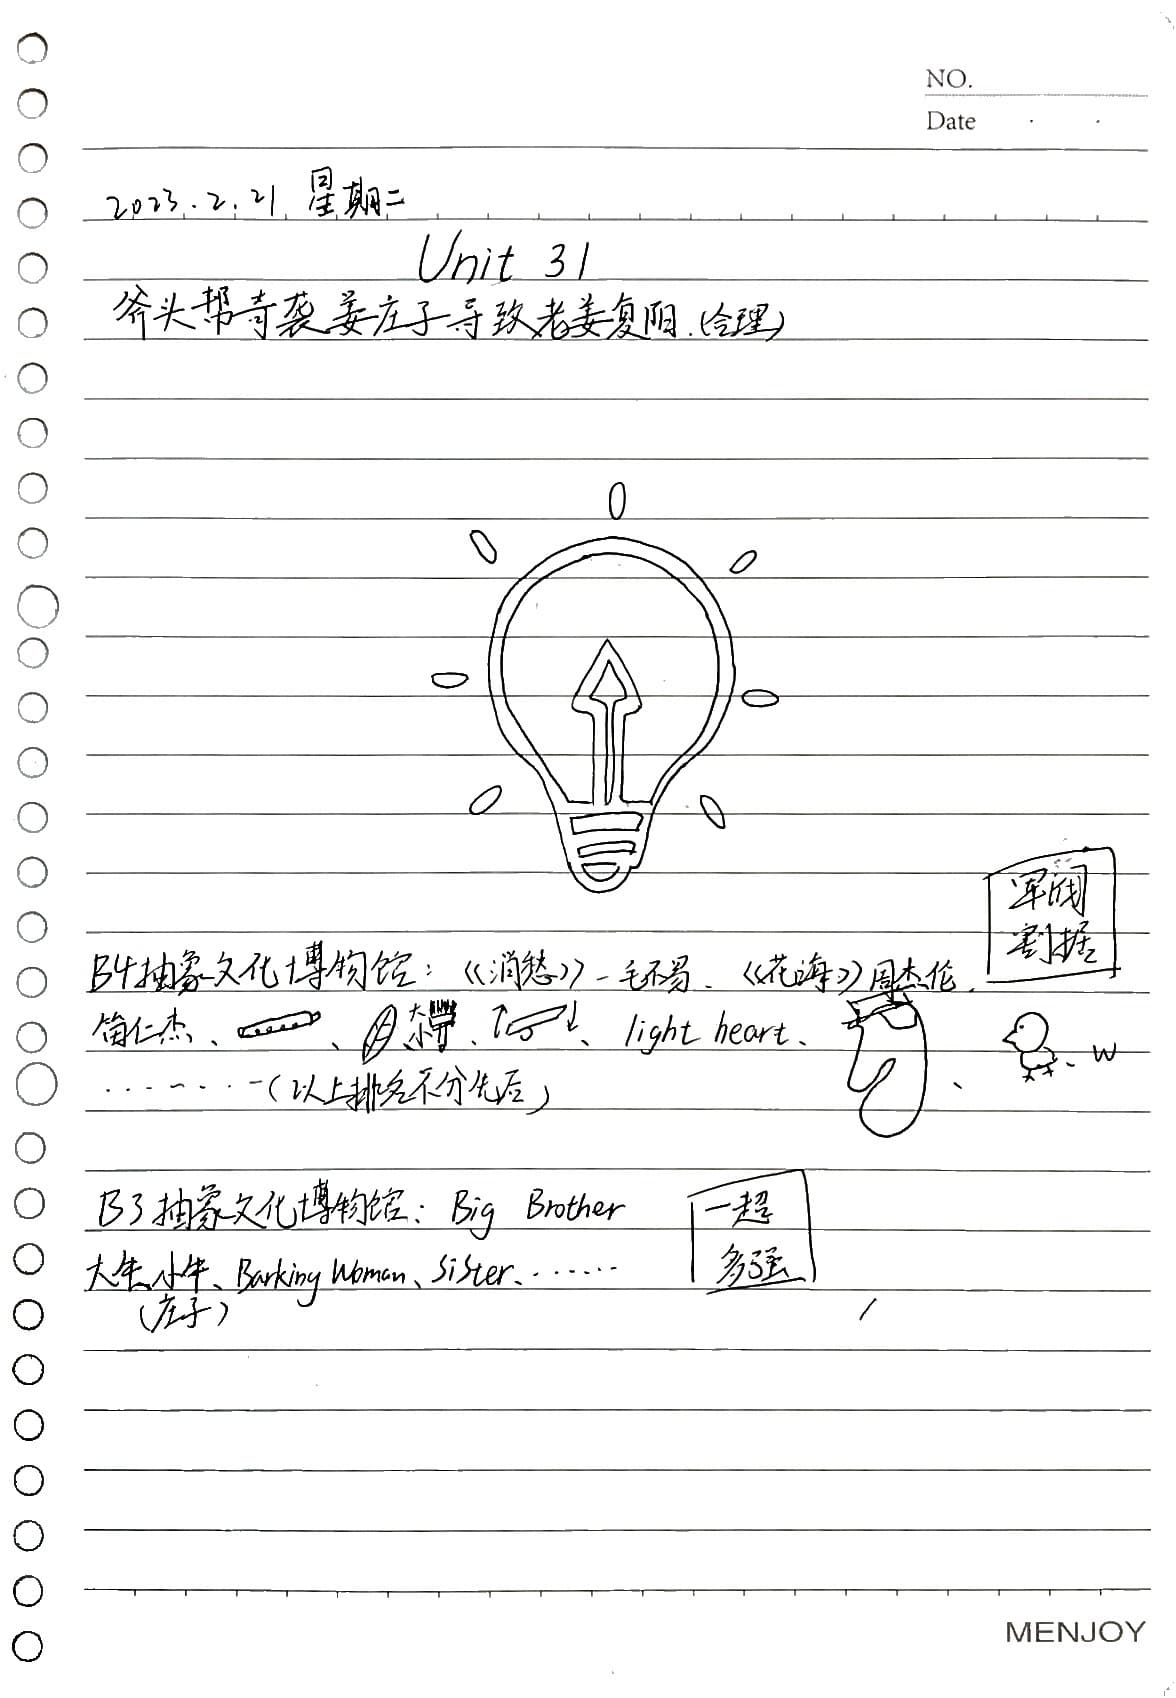 NO.
Date
2023.2.21 星期二
Unit 31
斧头帮奇袭姜庄子导致老姜复阳.(合理)
军阀
割据
B4抽象文化博物馆:《消愁》-毛不易、《花海》周杰伦、
简仁杰、 、 大 、 、light heart、 、 、W
.......(以上排名不分先后)
B3抽象文化博物馆: Big Brother
一超
多强
大牛小牛、Barking Woman、Sister、......
(庄子)
MENJOY